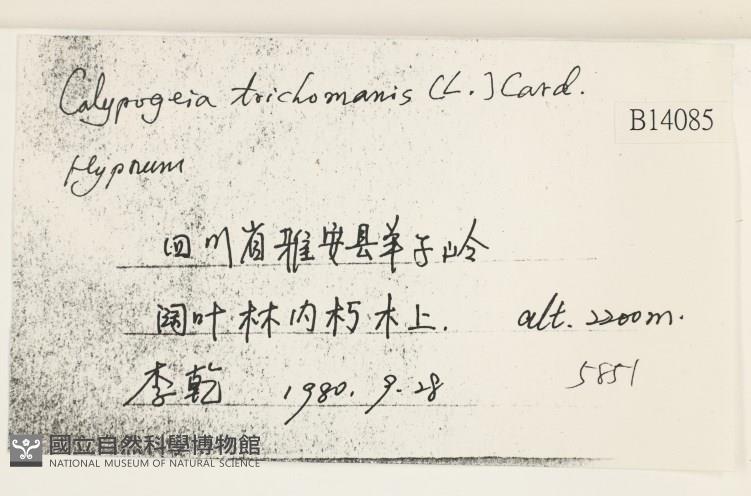 Calypogeia trichomanis (L.) Card.
B14085
Hypnum
四川省雅安县羊子岭
阔叶林内朽木上. alt. 2200m.
李乾 1980. 9. 28
5851
國立自然科學博物館
NATIONAL MUSEUM OF NATURAL SCIENCE